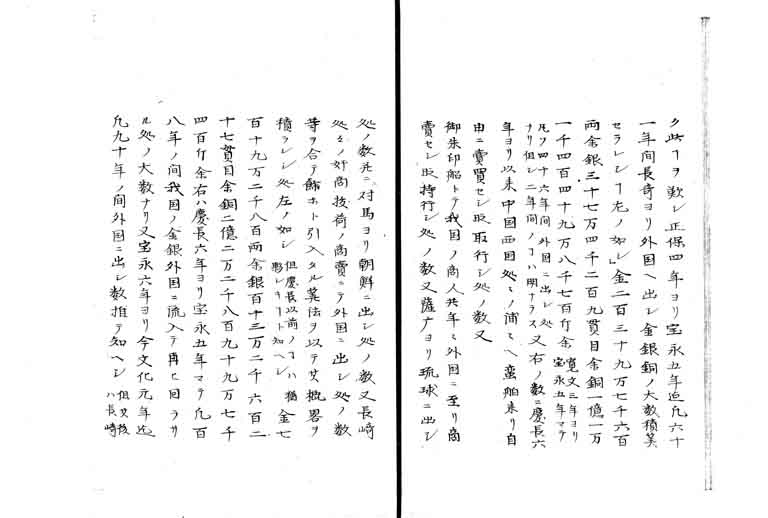 ク此ヿヲ歎シ正保四年ヨリ宝永五年迄凡六十
一年間長奇ヨリ外国ヘ出シ金銀銅ノ大数積算
セラレシヿ左ノ如シ金二百三十九万七千六百
両余銀三十七万四千二百九貫目余銅一億一万
一千四百四十九万八千七百斤余寛文三年ヨリ宝永五年マテ
凡ソ四十六年間外国ニ出シ処ナリ但シ二年間ノヿハ明ナラス又右ノ数ニ慶長六
年ヨリ以来中国西国処々ノ浦々ヘ蛮舶来リ自
由ニ賣買セシ取行シ処ノ数又
御朱印船トテ我国ノ商人共年々外国ニ至リ商
賣セシ持行シ処ノ数又薩广ヨリ琉球ニ出シ
処ノ数并ニ対馬ヨリ朝鮮ニ出シ処ノ数又長崎
処々ノ奸商抜荷ノ商賣ニテ外国ニ出シ処ノ数
等ヲ合テ餝ホト引入タル算法ヲ以テ其概畧ヲ
積ラレシ処左ノ如シ但慶長以前ノヿハ猶夥シキヿト知ヘシ金七
百十九万二千八百両余銀百十二万二千六百二
十七貫目余銅二億二万二千八百九十九万七千
四百斤余右ハ慶長六年ヨリ宝永五年マテ凡百
八年ノ間我国ノ金銀外国ニ流入テ再ヒ回ラサ
ル処ノ大数ナリ又宝永六年ヨリ今文化元年迄
凡九十年ノ間外国ニ出シ数推テ知ヘシ但其後ハ長崎